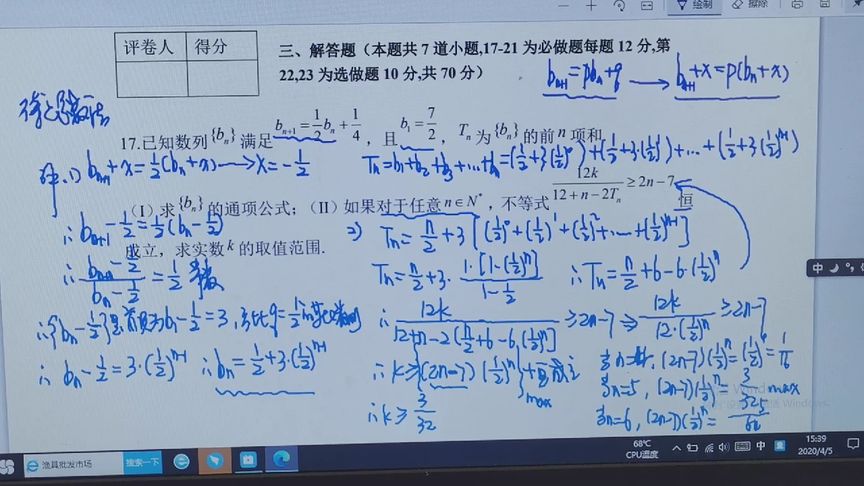 绘制 擦除
评卷人 得分
三、解答题（本题共 7 道小题,17-21 为必做题每题 12 分,第
22,23 为选做题 10 分,共 70 分）
b_{n+1}=pb_n+q → b_{n+1}+x=p(b_n+x)
17.已知数列{b_n}满足 b_{n+1}=\frac{1}{2}b_n+\frac{1}{4}，且 b_1=\frac{7}{2}，T_n为{b_n}的前n项和
b_{n+1}+x=\frac{1}{2}(b_n+x) → x=-\frac{1}{2}
T_n=b_1+b_2+b_3+...+b_n=(\frac{1}{2}+3(\frac{1}{2})^0)+(\frac{1}{2}+3(\frac{1}{2})^1)+...+(\frac{1}{2}+3(\frac{1}{2})^{n-1})
（I）求{b_n}的通项公式;（II）如果对于任意n∈N^*，不等式 \frac{12k}{12+n-2T_n}≥2n-7 恒
成立，求实数k的取值范围.
∴b_{n+1}-\frac{1}{2}=\frac{1}{2}(b_n-\frac{1}{2})
∴\frac{b_{n+1}-\frac{1}{2}}{b_n-\frac{1}{2}}=\frac{1}{2} 常数
∴{b_n-\frac{1}{2}}是首项为b_1-\frac{1}{2}=3,公比q=\frac{1}{2}
∴b_n-\frac{1}{2}=3·(\frac{1}{2})^{n-1} ∴b_n=\frac{1}{2}+3·(\frac{1}{2})^{n-1}
2) T_n=\frac{n}{2}+3[(\frac{1}{2})^0+(\frac{1}{2})^1+(\frac{1}{2})^2+...+(\frac{1}{2})^{n-1}]
T_n=\frac{n}{2}+3·\frac{1·[1-(\frac{1}{2})^n]}{1-\frac{1}{2}} ∴T_n=\frac{n}{2}+6-6·(\frac{1}{2})^n
∴\frac{12k}{12+n-2(\frac{n}{2}+6-6·(\frac{1}{2})^n)}≥2n-7 ⇒ \frac{12k}{12·(\frac{1}{2})^n}≥2n-7
∴k≥{(2n-7)(\frac{1}{2})^n}_{max} 恒成立
∴k≥\frac{3}{32}
当n=4,(2n-7)(\frac{1}{2})^n=(\frac{1}{2})^4=\frac{1}{16}
当n=5,(2n-7)(\frac{1}{2})^n=\frac{3}{32} max
当n=6,(2n-7)(\frac{1}{2})^n=\frac{5}{64}
中
渔具批发市场 搜索一下
68℃
CPU温度
中
15:39
2020/4/5